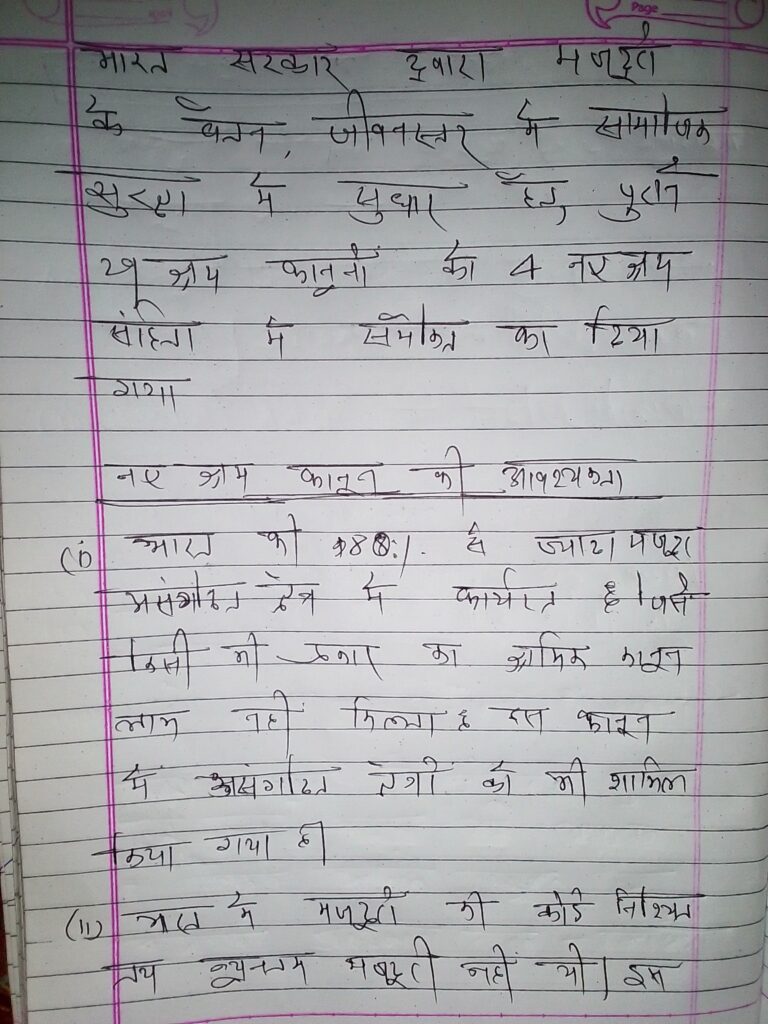 Page
भारत सरकार द्वारा मजदूरों
के वेतन, जीवनस्तर में सामाजिक
सुरक्षा में सुधार हेतु पुराने
29 श्रम कानूनों को 4 नए श्रम
संहिता में समेकित कर दिया
गया
नए श्रम कानून की आवश्यकता
(i) भारत की 88% से ज्यादा मजदूर
असंगठित क्षेत्र में कार्यरत है। जिसे
किसी भी प्रकार का श्रमिक कानून
लाभ नहीं मिलता है इस कानून
में असंगठित क्षेत्रों को भी शामिल
किया गया है।
(ii) भारत में मजदूरों की कोई निश्चित
तय न्यूनतम मजदूरी नहीं थी। इस